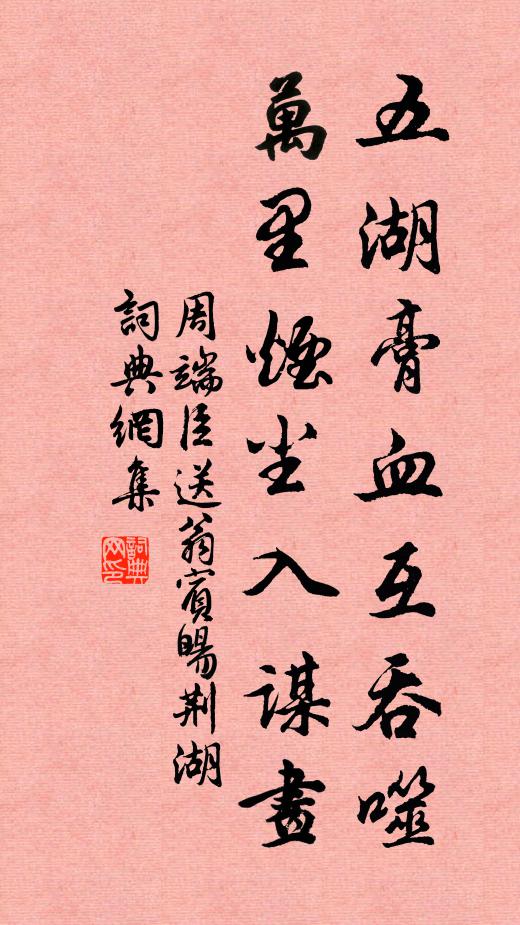 五湖膏血互吞噬
萬里煙尘入谋畫
周端臣送翁賓暘荆湖
詞典網集
詞典
网印